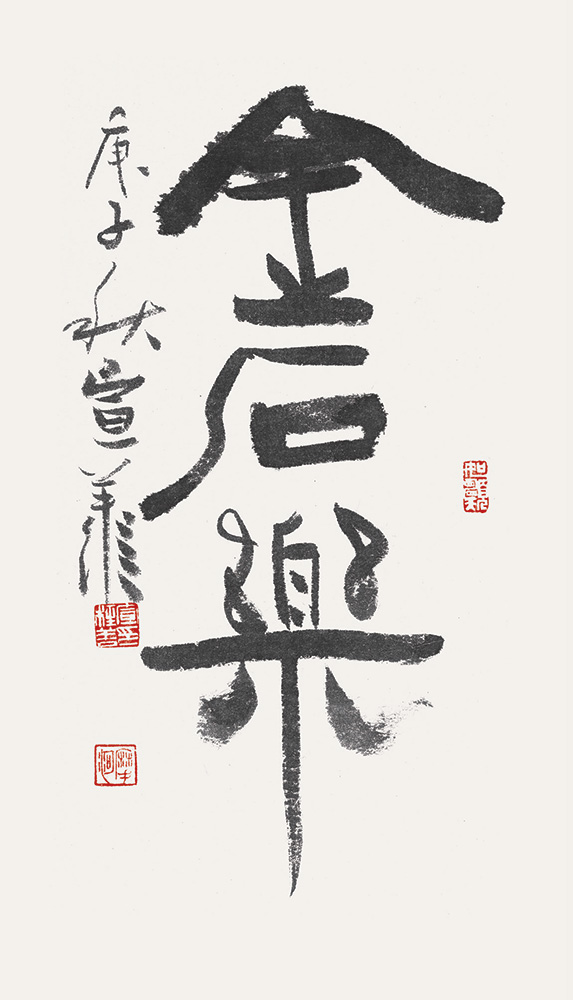 金石樂
庚子秋宣義